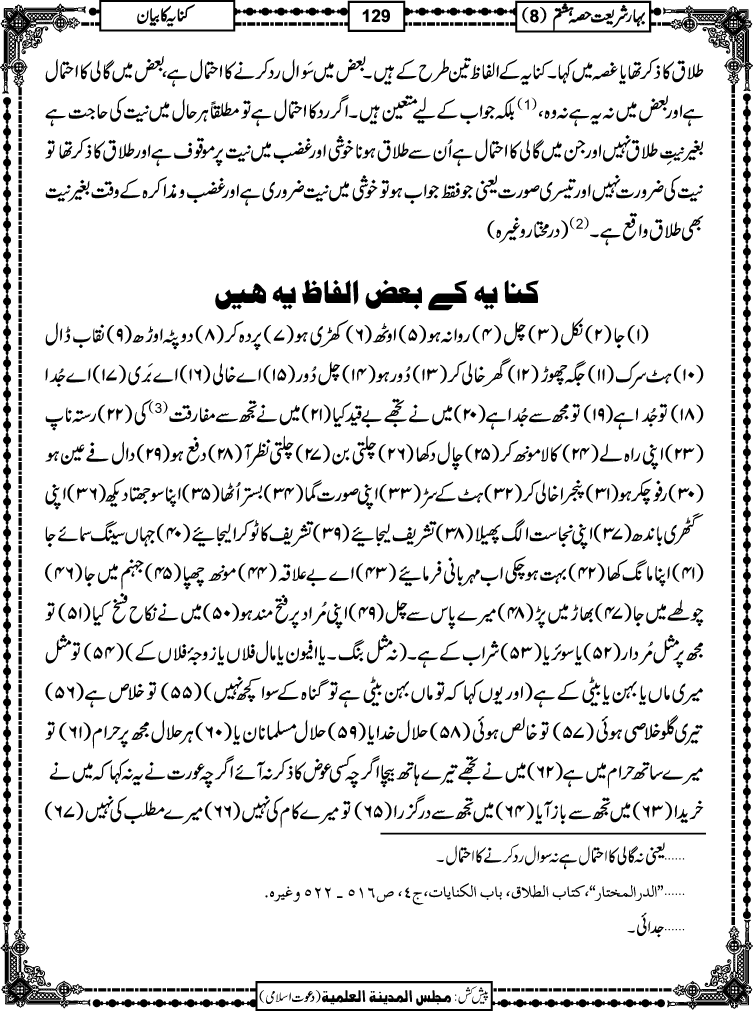 بہار شریعت حصہ ہشتم (8)
129
کنایہ کا بیان
طلاق کا ذکر تھا یا غصہ میں کہا۔ کنایہ کے الفاظ تین طرح کے ہیں۔ بعض میں سَوال رد کرنے کا احتمال ہے، بعض میں گالی کا احتمال
ہے اور بعض میں نہ یہ ہے نہ وہ، (1) بلکہ جواب کے لیے متعین ہیں۔ اگر رد کا احتمال ہے تو مطلقاً ہر حال میں نیت کی حاجت ہے
بغیر نیت طلاق نہیں اور جن میں گالی کا احتمال ہے اُن سے طلاق ہونا خوشی اور غضب میں نیت پر موقوف ہے اور طلاق کا ذکر تھا تو
نیت کی ضرورت نہیں اور تیسری صورت یعنی جو فقط جواب ہو تو خوشی میں نیت ضروری ہے اور غضب و مذاکرہ کے وقت بغیر نیت
بھی طلاق واقع ہے۔ (2) (درمختار وغیرہ)
کنایہ کے بعض الفاظ یہ ھیں
(۱) جا (۲) نکل (۳) چل (۴) روانہ ہو (۵) اوٹھ (۶) کھڑی ہو (۷) پردہ کر (۸) دوپٹہ اوڑھ (۹) نقاب ڈال
(۱۰) ہٹ سرک (۱۱) جگہ چھوڑ (۱۲) گھر خالی کر (۱۳) دُور ہو (۱۴) چل دُور (۱۵) اے خالی (۱۶) اے بَری (۱۷) اے جُدا
(۱۸) تو جُدا ہے (۱۹) تو مجھ سے جُدا ہے (۲۰) میں نے تجھے بے قید کیا (۲۱) میں نے تجھ سے مفارقت (3) کی (۲۲) رستہ ناپ
(۲۳) اپنی راہ لے (۲۴) کالا مونھ کر (۲۵) چال دکھا (۲۶) چلتی بن (۲۷) چلتی نظر آ (۲۸) دفع ہو (۲۹) دال فے عین ہو
(۳۰) رفو چکر ہو (۳۱) پنجرا خالی کر (۳۲) ہٹ کے سڑ (۳۳) اپنی صورت گما (۳۴) بستر اُٹھا (۳۵) اپنا سوجھتا دیکھ (۳۶) اپنی
گٹھری باندھ (۳۷) اپنی نجاست الگ پھیلا (۳۸) تشریف لیجائیے (۳۹) تشریف کا ٹوکرا لیجائیے (۴۰) جہاں سینگ سمائے جا
(۴۱) اپنا مانگ کھا (۴۲) بہت ہو چکی اب مہربانی فرمائیے (۴۳) اے بے علاقہ (۴۴) مونھ چھپا (۴۵) جہنم میں جا (۴۶)
چولھے میں جا (۴۷) بھاڑ میں پڑ (۴۸) میرے پاس سے چل (۴۹) اپنی مُراد پر فتح مند ہو (۵۰) میں نے نکاح فسخ کیا (۵۱) تو
مجھ پر مثل مُردار (۵۲) یا سوئر یا (۵۳) شراب کے ہے۔ (نہ مثل بنگ۔ یا افیون یا مال فلاں یا زوجۂ فلاں کے) (۵۴) تو مثل
میری ماں یا بہن یا بیٹی کے ہے (اور یوں کہا کہ تو ماں بہن بیٹی ہے تو گناہ کے سوا کچھ نہیں) (۵۵) تو خلاص ہے (۵۶)
تیری گلو خلاصی ہوئی (۵۷) تو خالص ہوئی (۵۸) حلال خدا یا (۵۹) حلال مسلمانان یا (۶۰) ہر حلال مجھ پر حرام (۶۱) تو
میرے ساتھ حرام میں ہے (۶۲) میں نے تجھے تیرے ہاتھ بیچا اگرچہ کسی عوض کا ذکر نہ آئے اگرچہ عورت نے یہ نہ کہا کہ میں نے
خریدا (۶۳) میں تجھ سے باز آیا (۶۴) میں تجھ سے درگزرا (۶۵) تو میرے کام کی نہیں (۶۶) میرے مطلب کی نہیں (۶۷)
......یعنی نہ گالی کا احتمال ہے نہ سوال رد کرنے کا احتمال۔
......"الدرالمختار"، کتاب الطلاق، باب الکنایات، ج٤، ص٥١٦ ـ ٥٢٢ وغیرہ.
......جدائی۔
پیش کش: مجلس المدینۃ العلمیۃ (دعوت اسلامی)